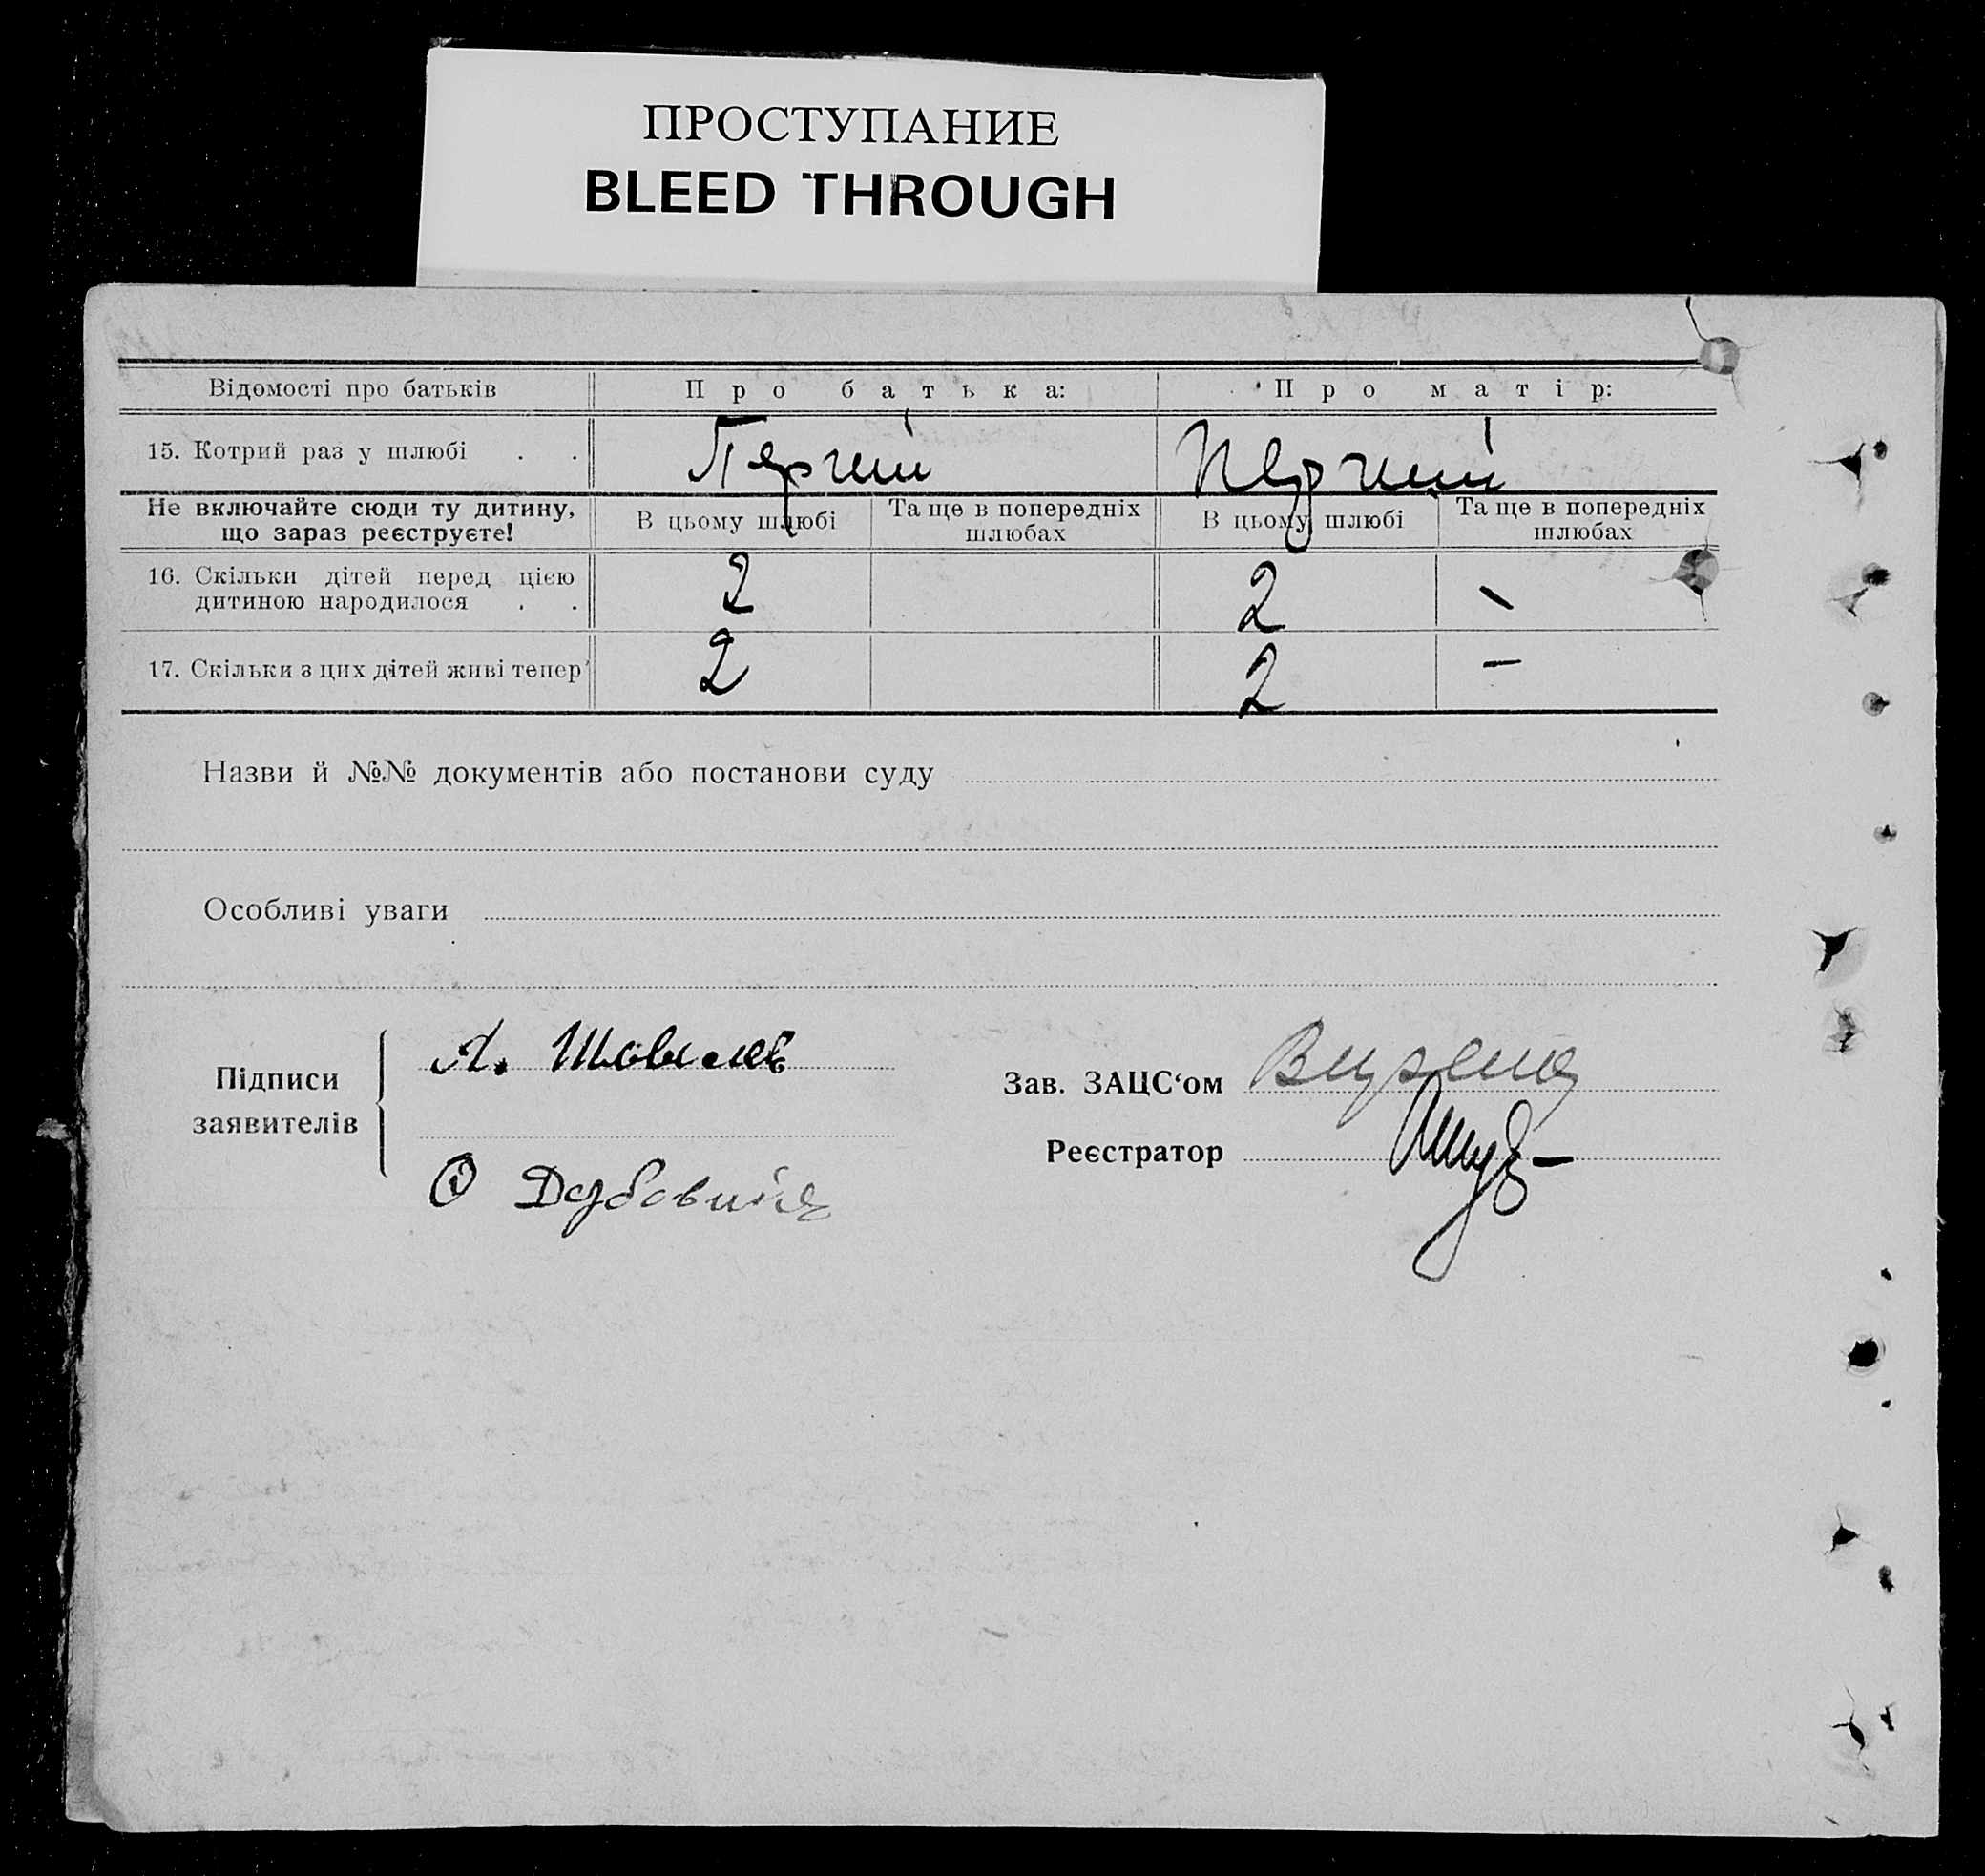 ПРОСТУПАНИЕ
BLEED THROUGH
Відомості про батьків Про батька: Про матір:
15. Котрий раз у шлюбі . . Перший Перший
Не включайте сюди ту дитину, що зараз реєструєте! В цьому шлюбі Та ще в попередніх шлюбах В цьому шлюбі Та ще в попередніх шлюбах
16. Скільки дітей перед цією
дитиною народилося . . 2 2 -
17. Скільки з цих дітей живі тепер 2 2 —
Назви й №№ документів або постанови суду
Особливі уваги
Підписи
заявителів
А.
Зав. ЗАЦС‘ом
Реєстратор